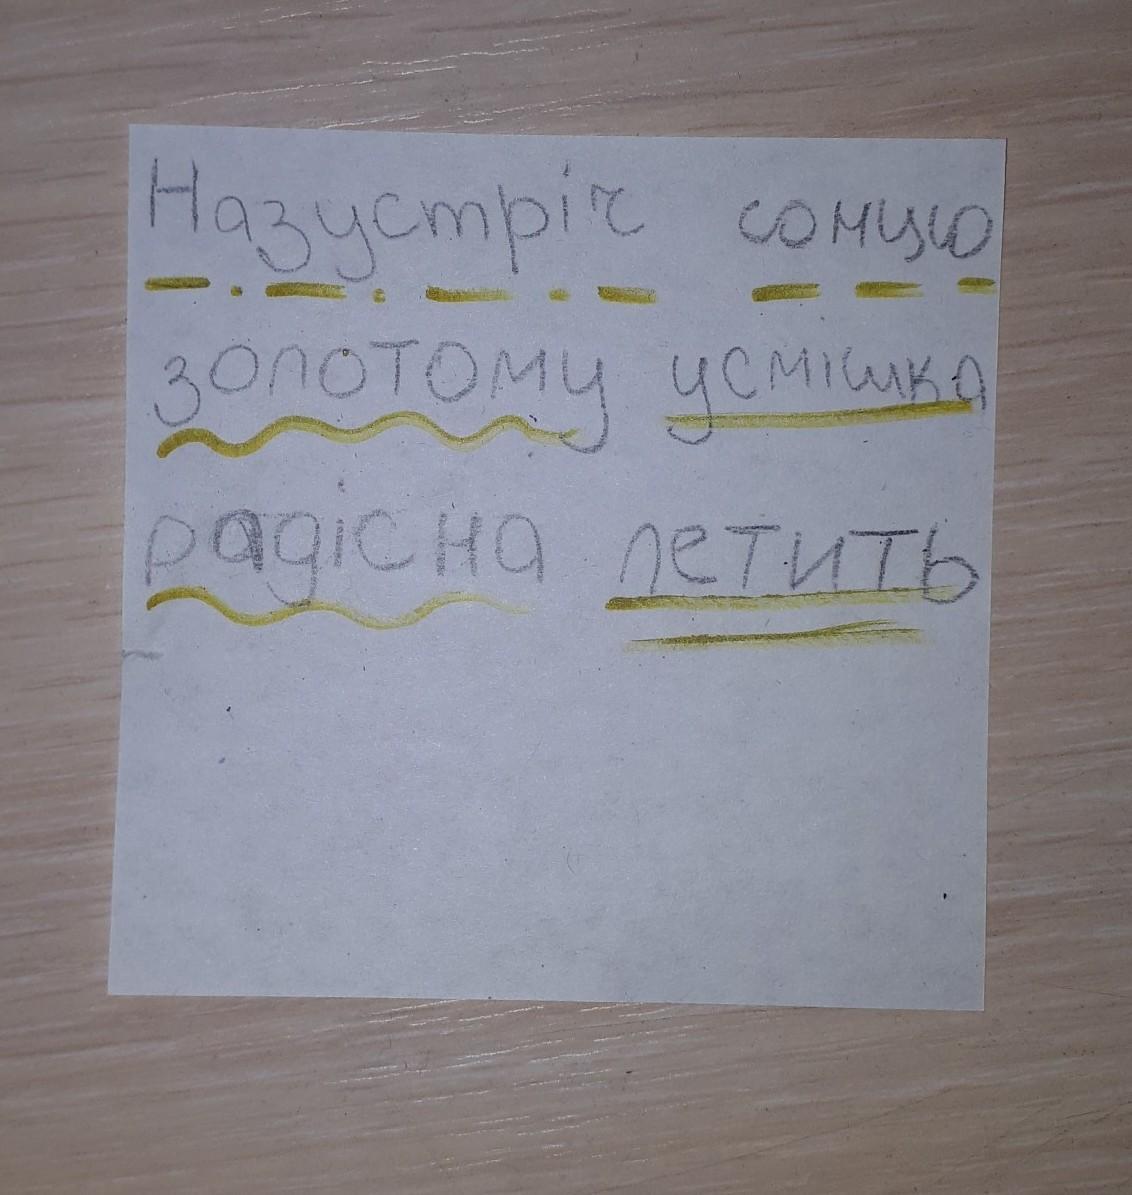 Назустріч сонцю
золотому усмішка
радісна летить